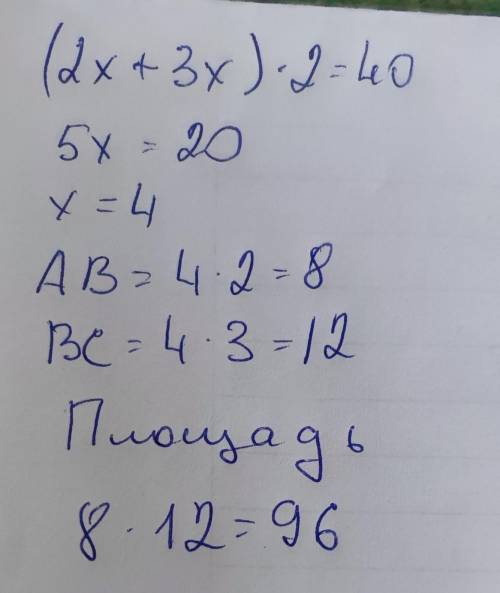 (2x + 3x) · 2 = 40
5x = 20
x = 4
AB = 4 · 2 = 8
BC = 4 · 3 = 12
Площадь
8 · 12 = 96